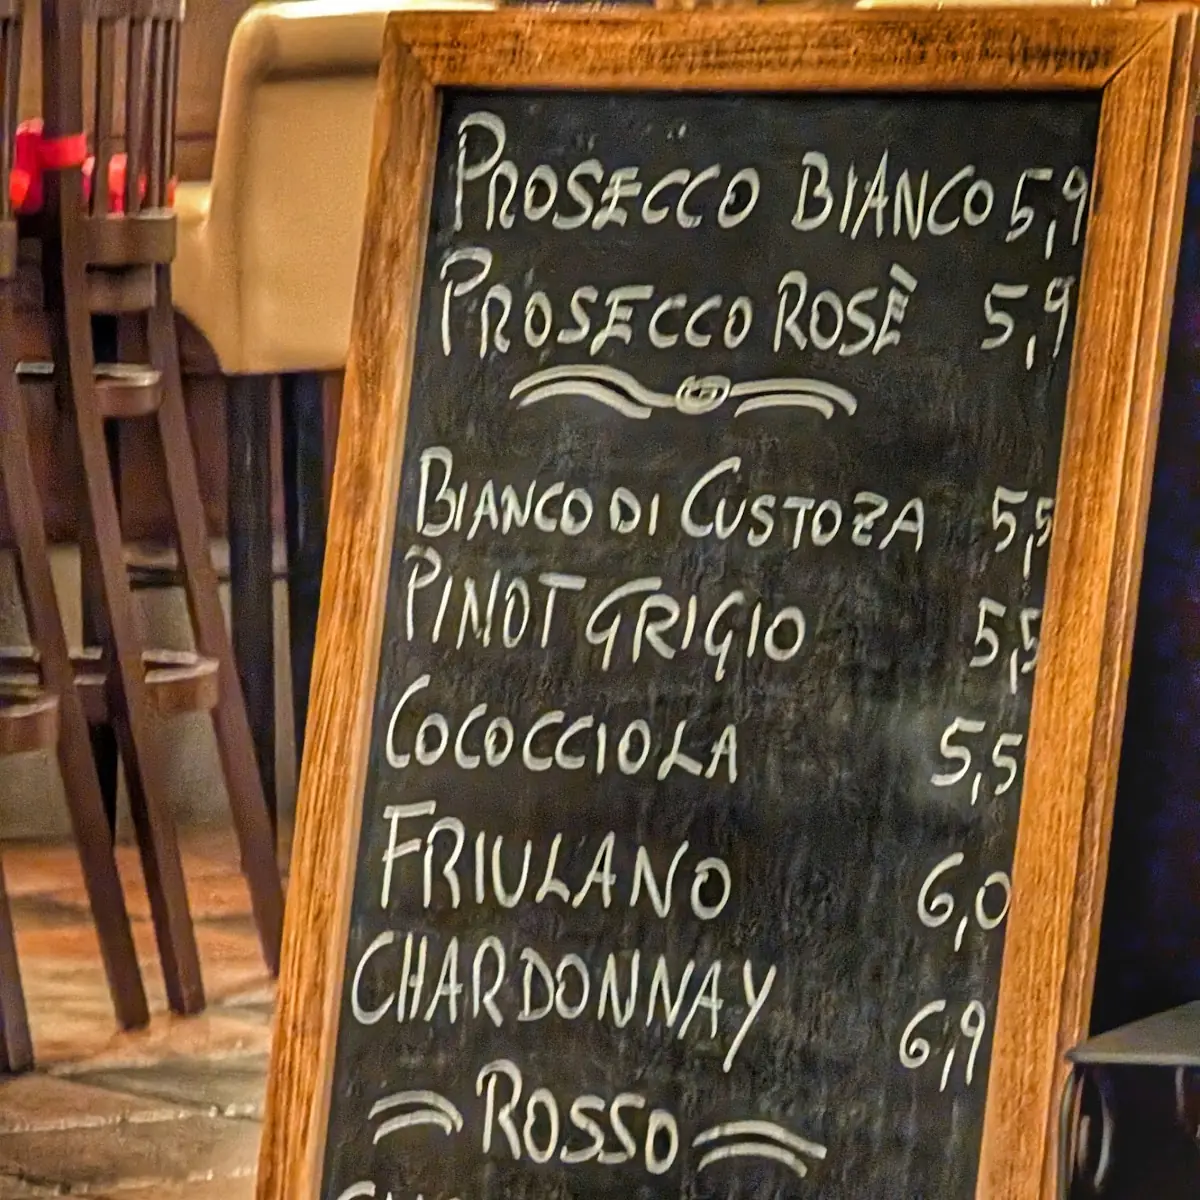 PROSECCO BIANCO 5,9
PROSECCO ROSÈ 5,9
BIANCO DI CUSTOZA 5,5
PINOT GRIGIO 5,5
COCOCCIOLA 5,5
FRIULANO 6,0
CHARDONNAY 6,9
ROSSO